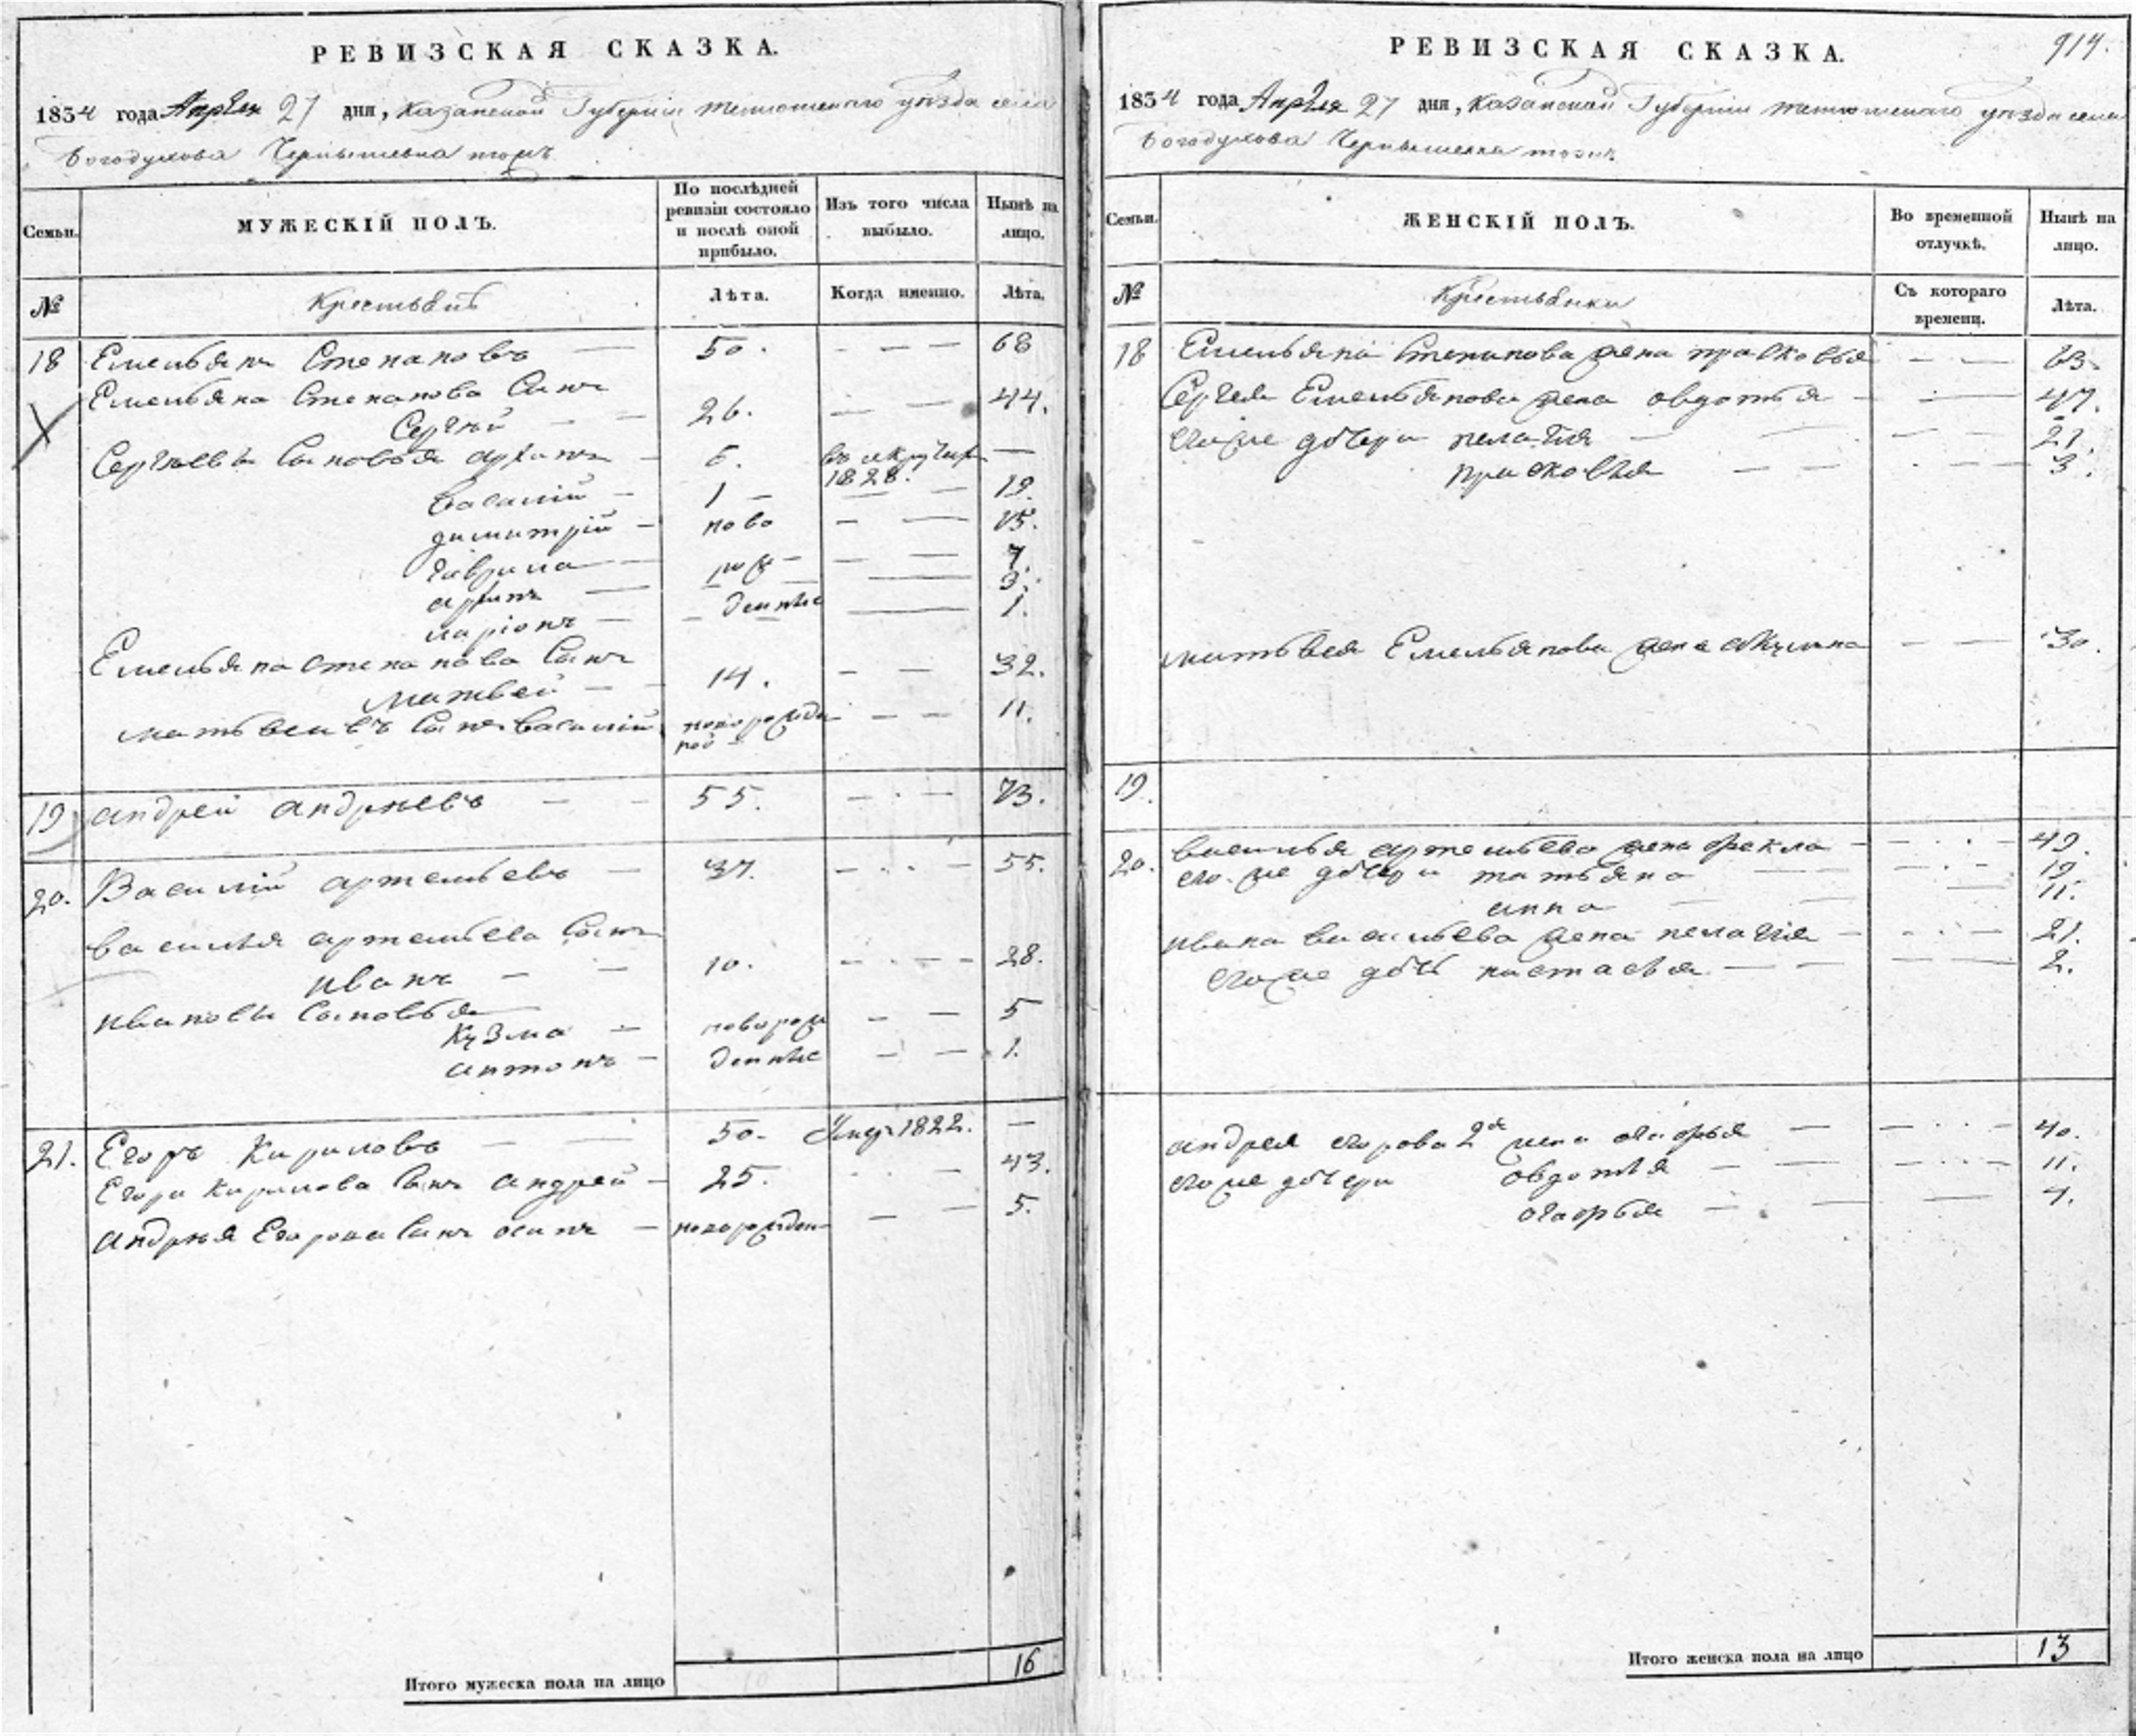 РЕВИЗСКАЯ СКАЗКА.
1834 года Апреля 27 дня, Казанской Губернии Тетюшскаго уезда села
Богодухова Чернышевка тожъ
Семьи.
МУЖЕСКІЙ ПОЛЪ.
По послѣдней ревизіи состояло и послѣ оной прибыло.
Изъ того числа выбыло.
Нынѣ на лицо.
№
Крестьянъ
Лѣта.
Когда именно.
Лѣта.
18 Емельянъ Степановъ — 50. — — — 68
Емельяна Степанова Сынъ
Сергѣй — — 26. — — 44.
Сергѣевы Сыновья архипъ — 6. въ рекруты —
1828.
василій — 1 — — — 19.
димитрій — ново — — 15.
гаврила — рож — — — 7.
архипъ — — — 3.
ларіонъ — — денные — 1.
Емельяна степанова Сынъ
Матвей — — 14. — — 32.
матвеивъ Сынъ Василій новорожден — — 11.
ной —
19 андрей андреевъ — — 55. — · — 73.
20. Василій артемьевъ — 37. — · · — 55.
василья артемьева Сынъ
иванъ — — 10. — · — · — 28.
ивановы Сыновья
Кузма — новорож — — 5
антонъ — денные — — 1.
21. Егоръ Кириловъ — — 50. Умер 1822. —
Егора Кирилова Сынъ Андрей — 25. · · — 43.
Андрея Егорова Сынъ осипъ — новорожден — — 5.
Итого мужеска пола на лицо 16
914.
РЕВИЗСКАЯ СКАЗКА.
1834 года Апреля 27 дня, Казанской Губернии тетюшскаго уезда села
Богодухова Чернышевка тожъ
Семьи.
ЖЕНСКІЙ ПОЛЪ.
Во временной отлучкѣ.
Нынѣ на лицо.
№
Крестьянки
Съ котораго времени.
Лѣта.
18 Емельяна Степанова жена прасковья — — 63.
Сергея Емельянова жена овдотья — · — 47.
егоже дочери пелагия — — — — 21.
прасковья — — · — — 3.
матвея Емельянова жена акулина — — 30.
19.
20. василья артемьева жена фекла — — · · — 49.
его же дочери татьяна — — · — 19.
анна — — — 11.
ивана васильева жена пелагия — — · · — 21.
егоже дочь настасья — — — — 2.
андрея егорова 2я жена агафья — — · · — 40.
егоже дочери овдотья — — — · · — 11.
агафья — — — 4.
Итого женска пола на лицо 13